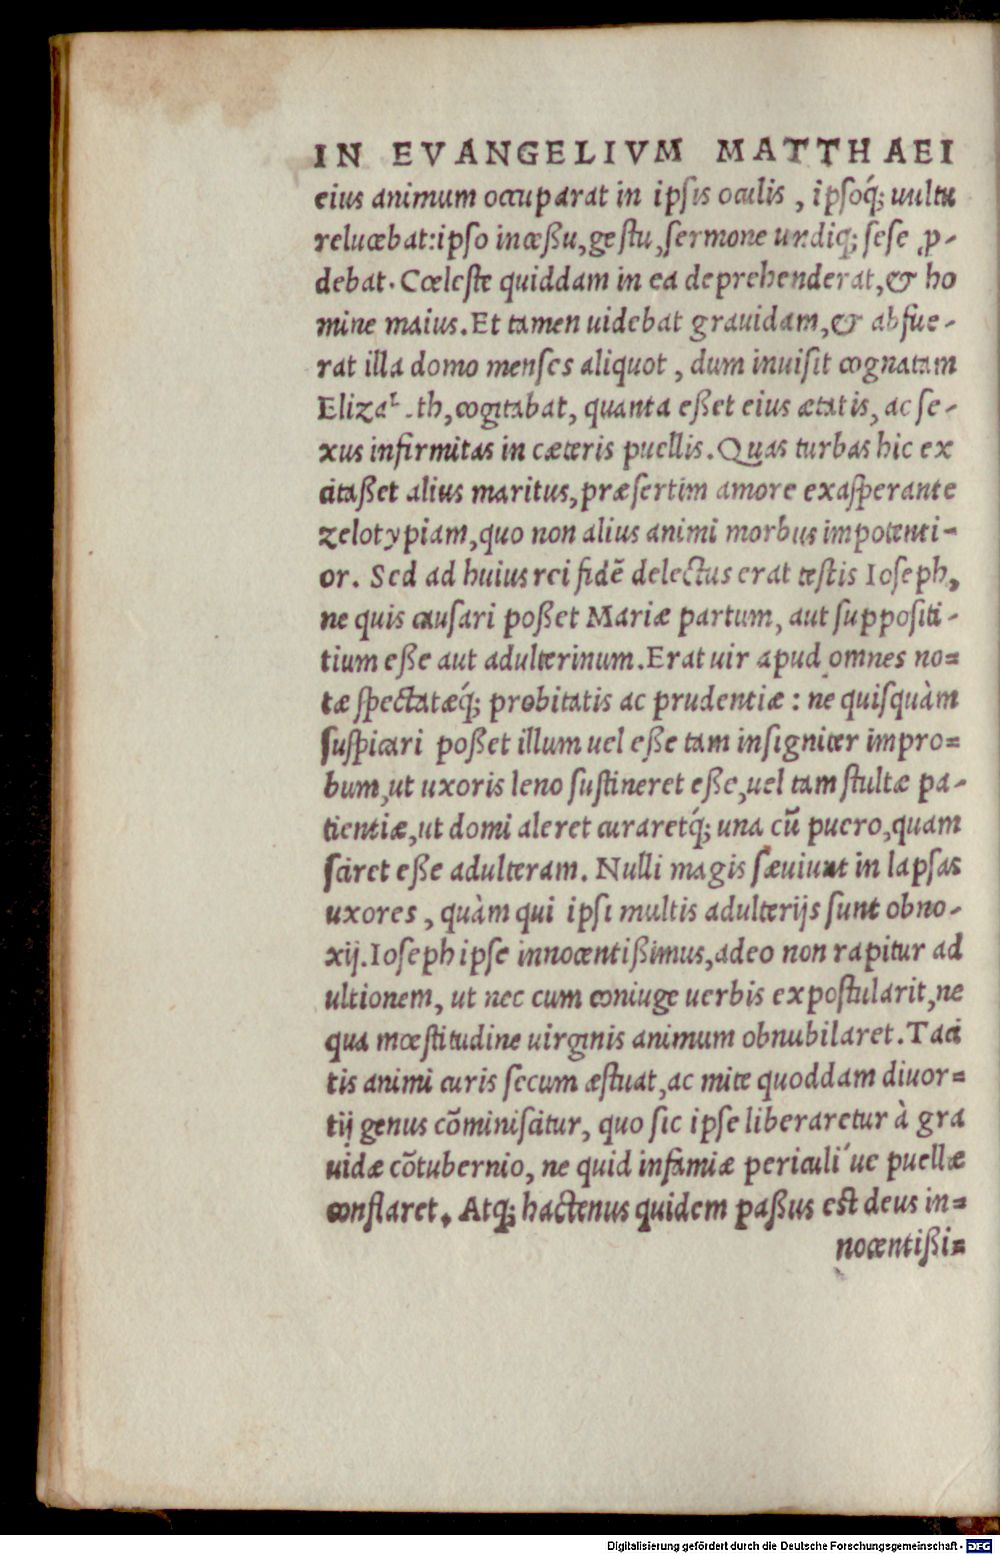 IN EVANGELIVM MATTHAEI
eius animum occuparat in ipsis oculis, ipsoq́; uultu
relucebat: ipso inceßu, gestu, sermone undiq; sese ꝓ-
debat. Cœleste quiddam in ea deprehenderat, & ho
mine maius. Et tamen uidebat grauidam, & abfue-
rat illa domo menses aliquot, dum inuisit cognatam
Elizabeth, cogitabat, quanta eßet eius ætatis, ac se-
xus infirmitas in cæteris puellis. Quas turbas hic ex
citaßet alius maritus, præsertim amore exasperante
zelotypiam, quo non alius animi morbus impotenti-
or. Sed ad huius rei fidē delectus erat testis Ioseph,
ne quis causari poßet Mariæ partum, aut suppositi-
tium eße aut adulterinum. Erat uir apud omnes no=
tæ spectatæq́; probitatis ac prudentiæ: ne quisquàm
suspicari poßet illum uel eße tam insigniter impro=
bum, ut uxoris leno sustineret eße, uel tam stultæ pa-
tientiæ, ut domi aleret curaretq́; una cū puero, quam
sciret eße adulteram. Nulli magis sæuiunt in lapsas
uxores, quàm qui ipsi multis adulterijs sunt obno-
xij. Ioseph ipse innocentißimus, adeo non rapitur ad
ultionem, ut nec cum coniuge uerbis expostularit, ne
qua mœstitudine uirginis animum obnubilaret. Taci
tis animi curis secum æstuat, ac mite quoddam diuor=
tij genus cōminiscitur, quo sic ipse liberaretur à gra
uidæ cōtubernio, ne quid infamiæ periculi´ue puellæ
conflaret. Atq; hactenus quidem paßus est deus in=
nocentißi=
Digitalisierung gefördert durch die Deutsche Forschungsgemeinschaft - DFG